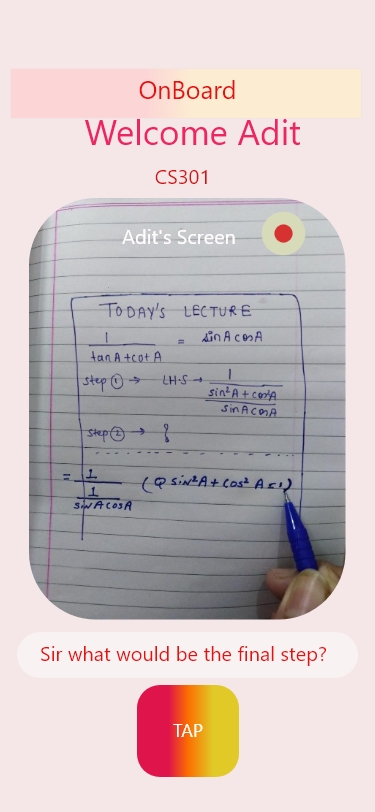 OnBoard
Welcome Adit
CS301
Adit's Screen
TODAY'S LECTURE
1/(tanA+cotA) = sinAcosA
Step ① → LHS → 1/((sin²A+cos²A)/(sinAcosA))
Step ② → {
= 1/(1/(sinAcosA)) (Q sin²A+cos²A=1)
Sir what would be the final step?
TAP